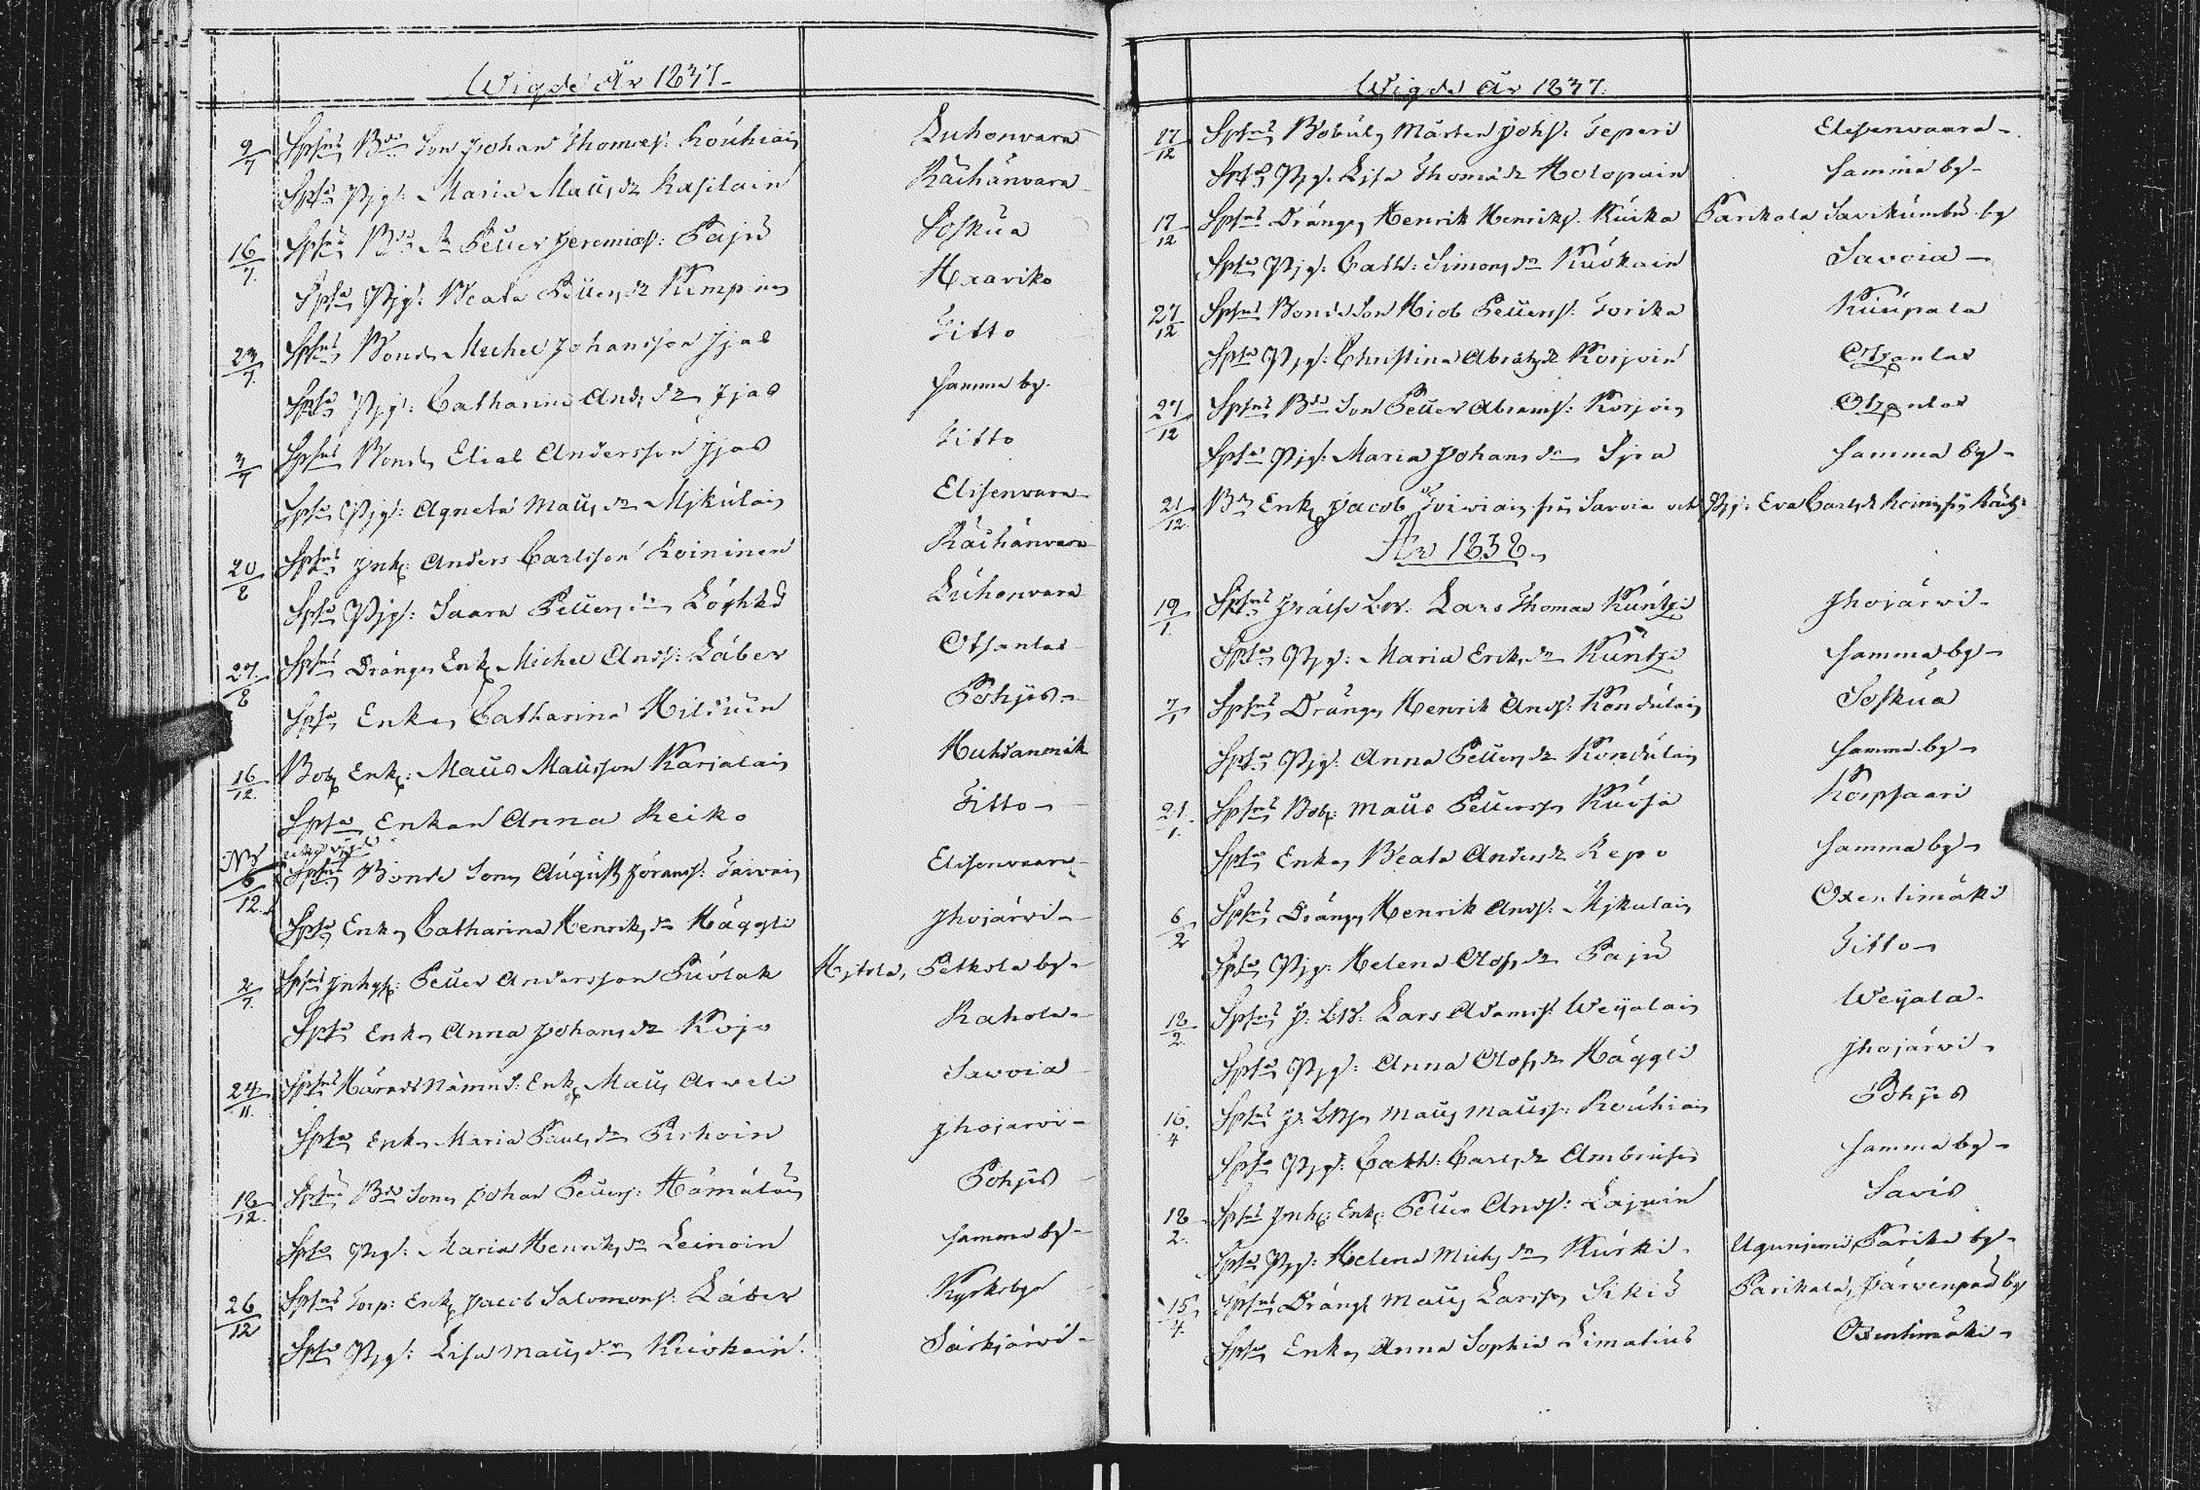 Wigde År 1837.
9/7 Sphns Bde Son Johan Thomæs: Rouhiain Luhonvara
Spha Pig: Maria Matts dr Kasilain Räihänvara
16/7. Sphns Bde Sn Petter Jeremiæs: Paju Soskua
Spha Pig: Beata Petters dr Kempinen Haariko
23/7. Sphns Bond. Michel Johansson Ijäs Titto
Spha Pig: Catharina Ands dr Ijäs samma by.
3/7 Sphns Bond. Elias Andersson Ijäs Titto
Spha Pig: Agneta Matts dr Mikulain Elisenvara
20/8 Sphns Inh: Anders Carlsson Roininen Räihänvara
Spha Pig: Saara Petters dr Luhonvara
27/8 Sphns Dräng. Enk. Michel Ands: Käber Otsanlas
Spha Enk. Catharina Hilduen Pohjis
16/12. Bob. Enk: Matts Mattsson Karjalain Huhdanmäk
Spha Enkan Anna Reiko Titto
6/12. Sphns Bonde Son August Jörans: Taivain Elisenvaara
Spha Enk. Catharina Henriks dr Häggli Ihojärvi
2/7. Sphns Inhys: Petter Andersson Puolak Hitola, Petkola by
Spha Enk. Anna Johans dr Kojo Rahola
24/11. Sphns Härads Nämnd: Enk. Matts Arveli Savoia
Spha Enk. Maria Pauls dr Pirhoin Ihojarvi
18/12. Sphns Bde Son Johan Petters: Hämäläin Pohjis
Spha Pig: Maria Henriks dr Leinoin samma by
26/12 Sphns Torp: Enk. Jacob Salomons: Käber Kyrkoby
Spha Pig: Lisa Matts dr Kuokain. Särkjärvi
Wigde År 1837.
17/12 Sphns Mårten Johs: Teperi Elisenvaara
Spha Pig. Lisa Thomæ dr Holopain samma by
17/12 Sphns Dräng. Henrik Henriks: Kuika Parikala Savikumbu by
Spha Pig: Cath: Simons dr Kuokain Savoia
27/12 Sphns Bonde Son Hiob Petters: Torika Kuupala
Spha Pig: Christina Abrahs dr Korjoin Otzanlas
27/12 Sphns Bde Son Petter Abrams: Korjoin Otzanlas
Spha Pig: Maria Johans dr Ijra samma by
21/12. Bn Enk. Jacob Toiviain frn Savoia och Pig: Eva Carls dr Roinin frn
År 1838
19/1. Sphns Lars Thomas Kuntzi Ihojärvi
Spha Pig: Maria Eriks dr Kuntzi samma by
7/1 Sphns Dräng. Henrik Ands: Kondulain Soskua
Spha Pig: Anna Petters dr Kondulain samma by
21/1. Sphns Bob: Matts Pettersn Kuosa Korpsaari
Spha Enk. Beata Anders dr Repo samma by
6/2 Sphns Dräng. Henrik Ands: Mikulain Oxentimäki
Spha Pig: Helena Olofs dr Paju Titto
18/2. Sphns Lars Adams: Weijalain Weijala
Spha Pig: Anna Olofs dr Häggli Ihojärvi
16./4 Sphns Matts Mattss: Rouhiain Pohjis
Spha Pig: Cath: Carls dr Ambrusis samma by
18/2. Sphns Inh: Enk: Petter Ands: Lajuin Savis
Spha Pig: Helena Mich. dr Kurki. Ugunjemi, Parika by
15/4. Sphns Dräng Matts Larsson Sikiö Parikala, Järvenpää by
Spha Enk. Anna Sophia Limatius Oxentimäki